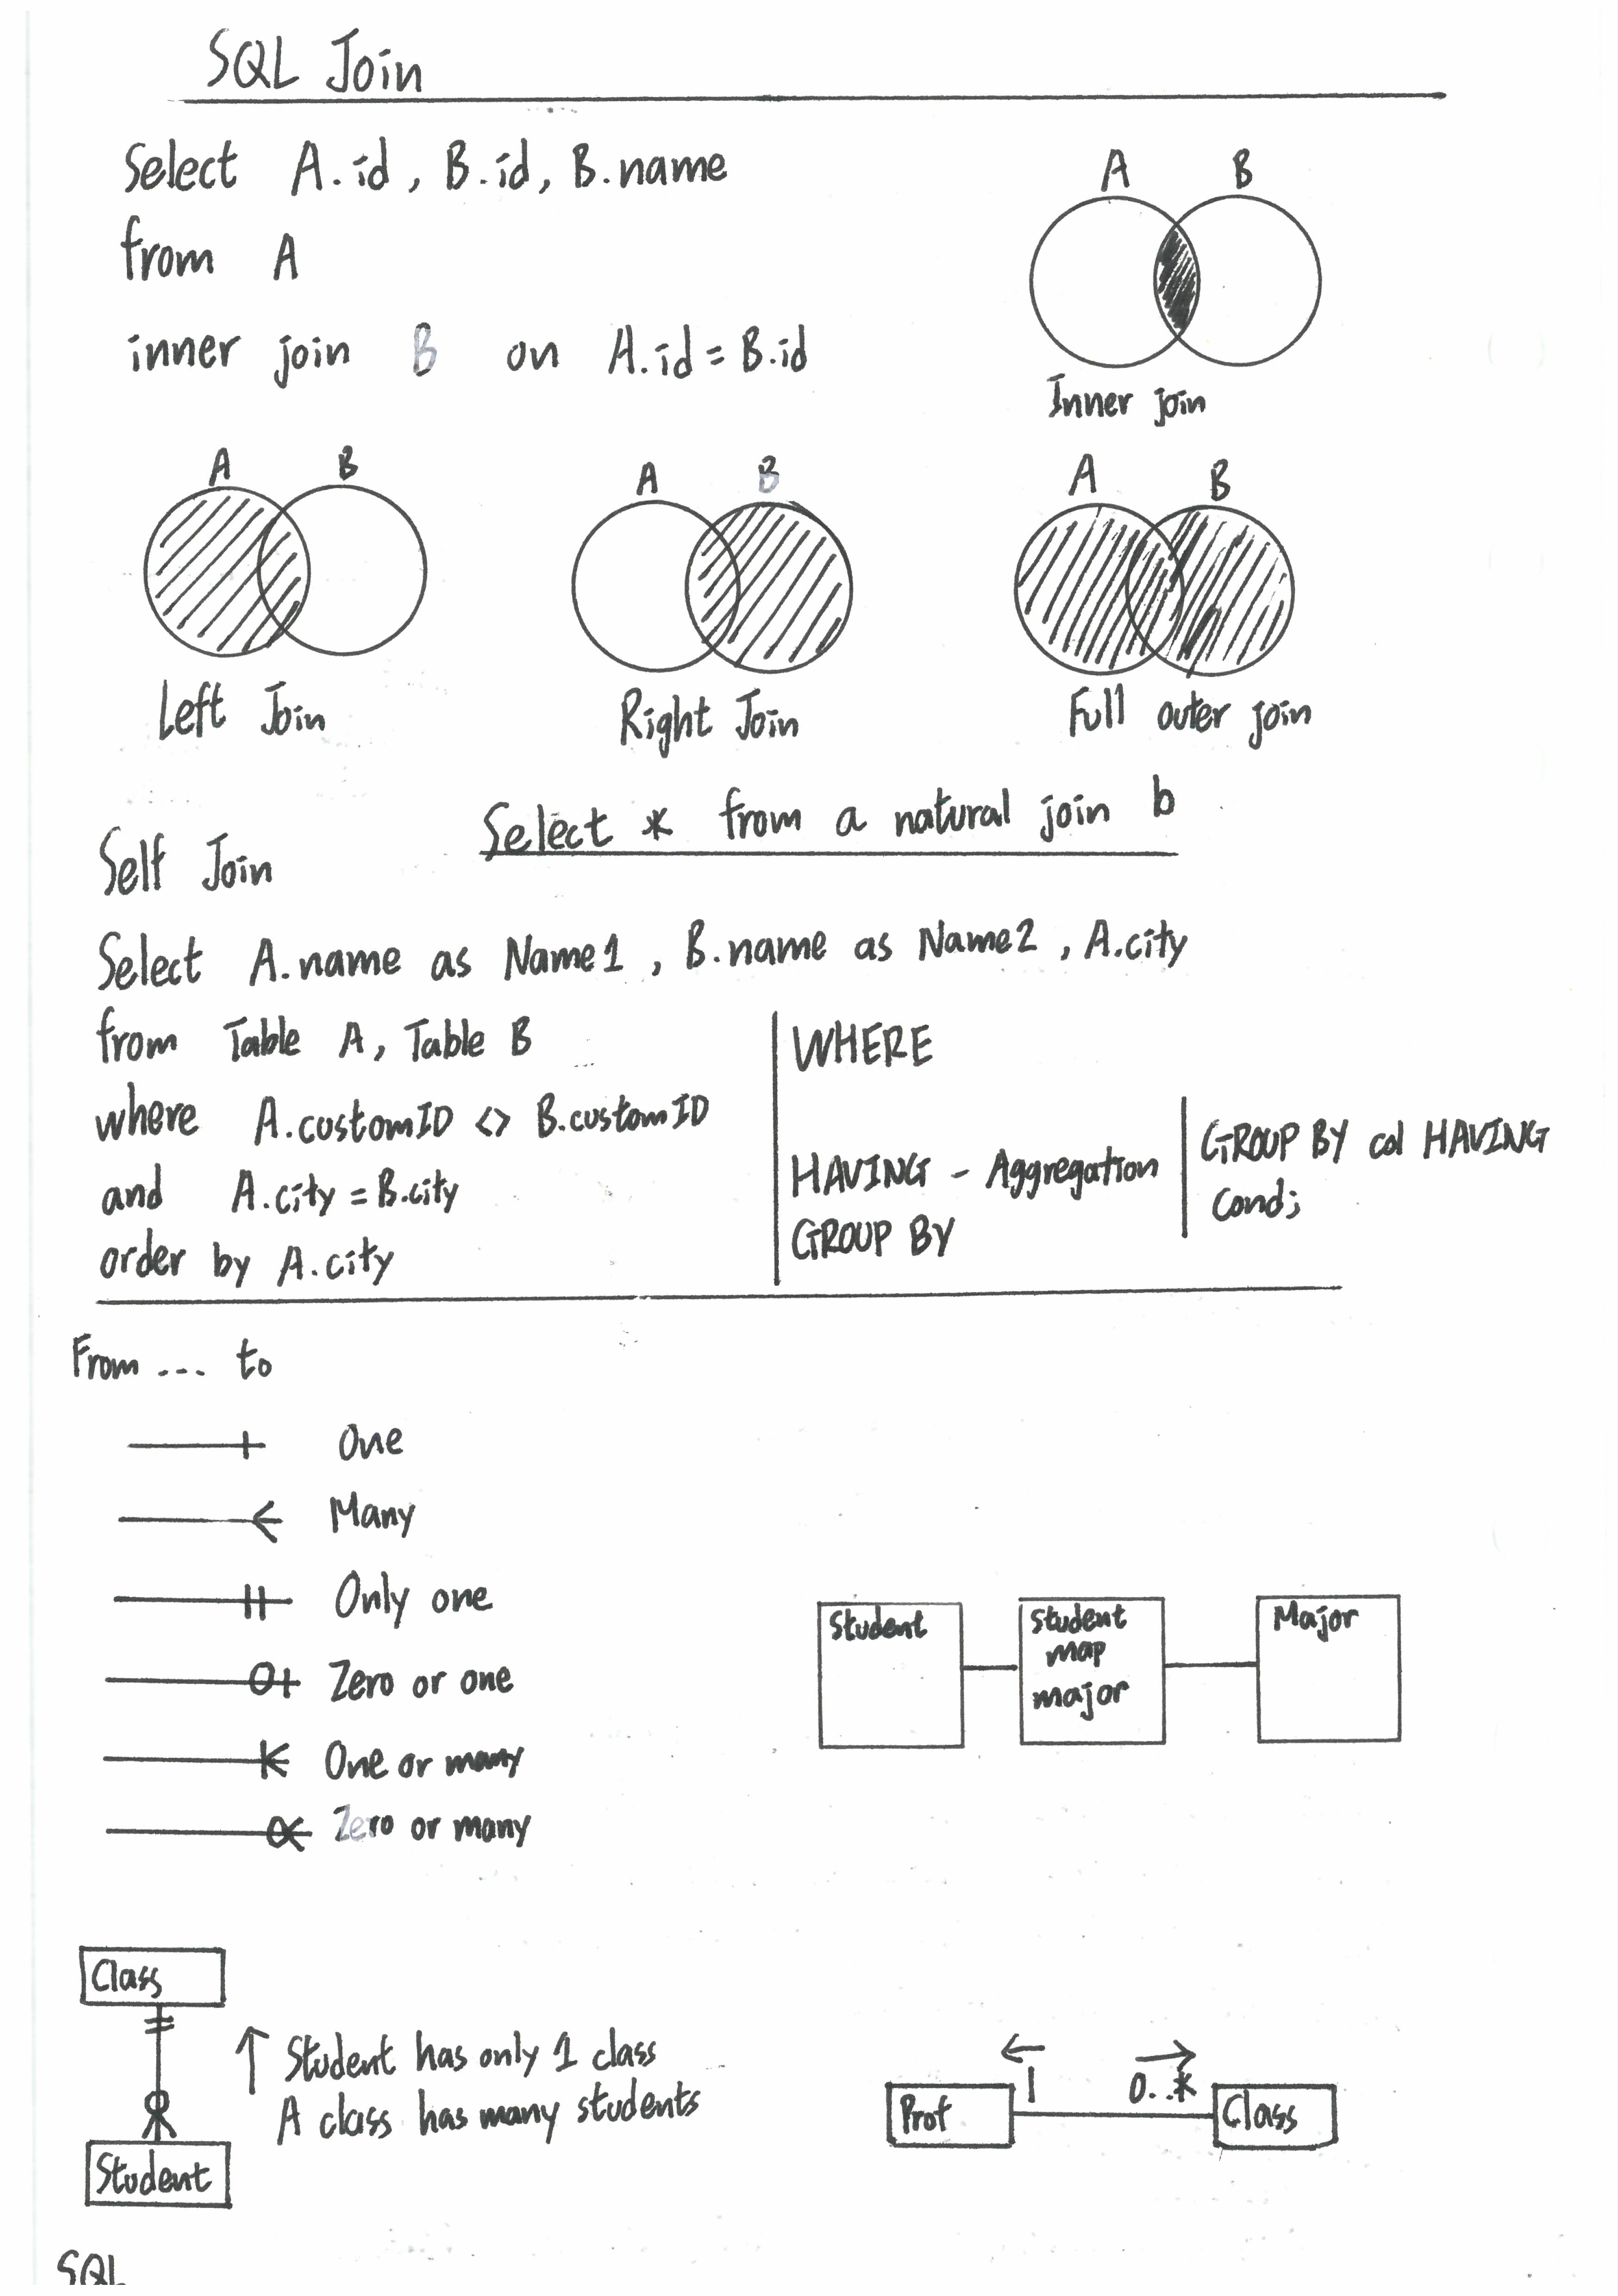 SQL Join
Select A.id, B.id, B.name
from A
inner join B on A.id = B.id
A B
Inner join
A B
Left Join
A B
Right Join
A B
Full outer join
Select * from a natural join b
Self Join
Select A.name as Name1, B.name as Name2, A.city
from Table A, Table B
where A.customID <> B.customID
and A.city = B.city
order by A.city
WHERE
HAVING - Aggregation
GROUP BY
GROUP BY col HAVING
Cond;
From ... to
One
Many
Only one
Zero or one
One or many
Zero or many
Student
Student
map
major
Major
Class
Student has only 1 class
A class has many students
Student
1 0..*
Prof Class
SQL